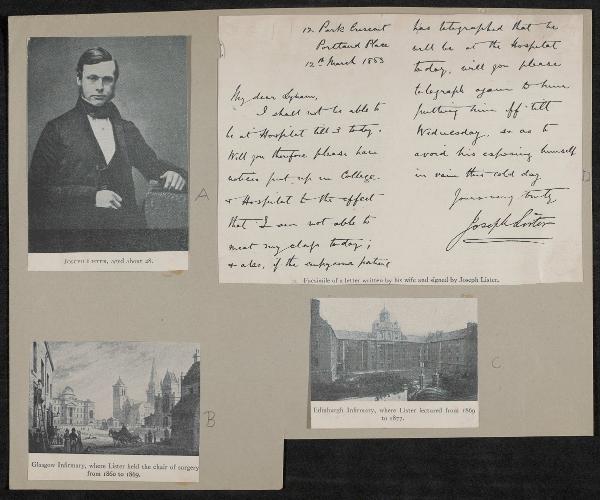 12 Park Crescent
Portland Place
12th March 1883
My dear Lynam,
I shall not be able to
be at Hospital till 3 today.
Will you therefore please have
notices put up in College
& Hospital to the effect
that I am not able to
meet my class today;
& also, if the empyema patient
has telegraphed that he
will be at the Hospital
today, will you please
telegraph again to him
putting him off till
Wednesday, so as to
avoid his exposing himself
in vain this cold day.
Yours very truly
Joseph Lister
Facsimile of a letter written by his wife and signed by Joseph Lister.
JOSEPH LISTER, aged about 28.
A
D
Glasgow Infirmary, where Lister held the chair of surgery
from 1860 to 1869.
B
Edinburgh Infirmary, where Lister lectured from 1869
to 1877.
C